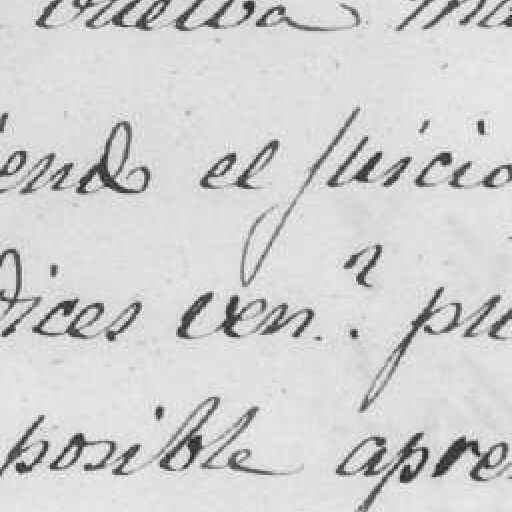 vuelva ma
iendo el juicio
dices ven.r pu
posible apre